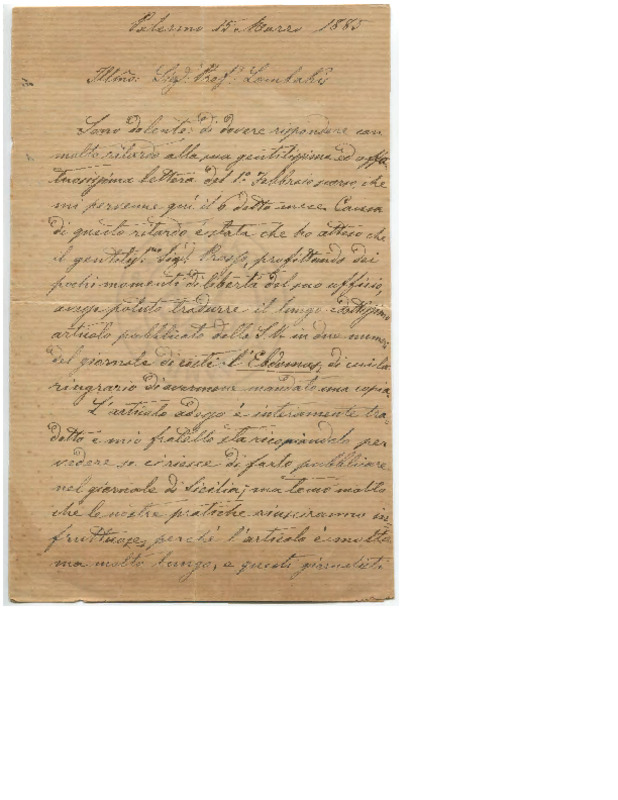 Palermo 15 Marzo 1885
Illmo: Sigr. Profr. Lambakis
Sono dolente di dovere rispondere con
molto ritardo alla sua gentilissima ed affet
tuosissima lettera del 1° Febbraio scorso, che
mi pervenne qui il 6 detto mese. Causa
di questo ritardo è stata che ho atteso che
il gentiliss.mo Sigr. profittando dei
pochi momenti di libertà del suo officio,
avesse potuto tradurre il lungo dottissimo
articolo pubblicato dalla S.V. in due numeri
del giornale di costì l'Ebdomas, di cui la
ringrazio d'avermene mandato una copia.
L'articolo adesso è interamente tra-
dotto e mio fratello sta ricopiandolo per
vedere se ci riesce di farlo pubblicare
nel giornale di Sicilia; ma temo molto
che le nostre pratiche riusciranno in
fruttuose, perché l'articolo è molto
ma molto lungo, e questi giornalisti